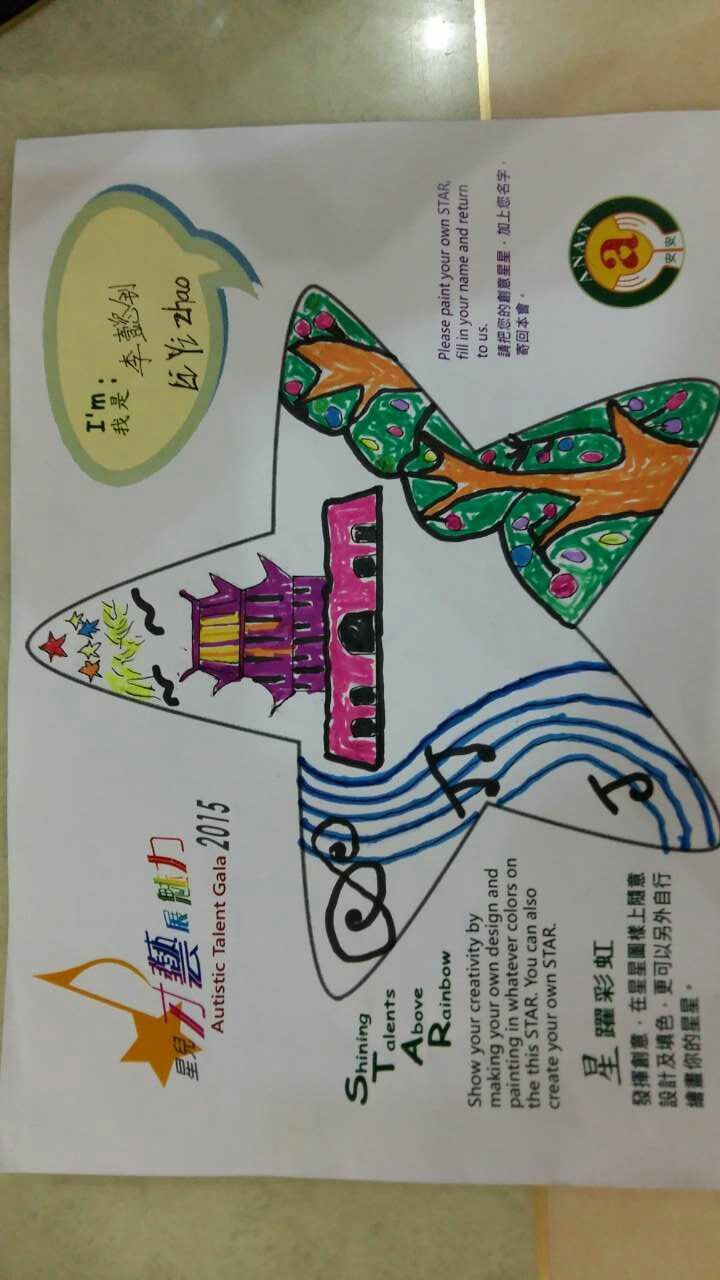 星兒才藝展魅力
Autistic Talent Gala 2015
I'm:
我是
李懿钊
Li Yi zhao
Shining
Talents
Above
Rainbow
Show your creativity by
making your own design and
painting in whatever colors on
the this STAR. You can also
create your own STAR.
星躍彩虹
發揮創意,在星星圖樣上隨意
設計及填色,更可以另外自行
繪畫你的星星。
Please paint your own STAR,
fill in your name and return
to us.
請把您的創意星星,加上您名字,
寄回本會。
ANNAN
a
安安